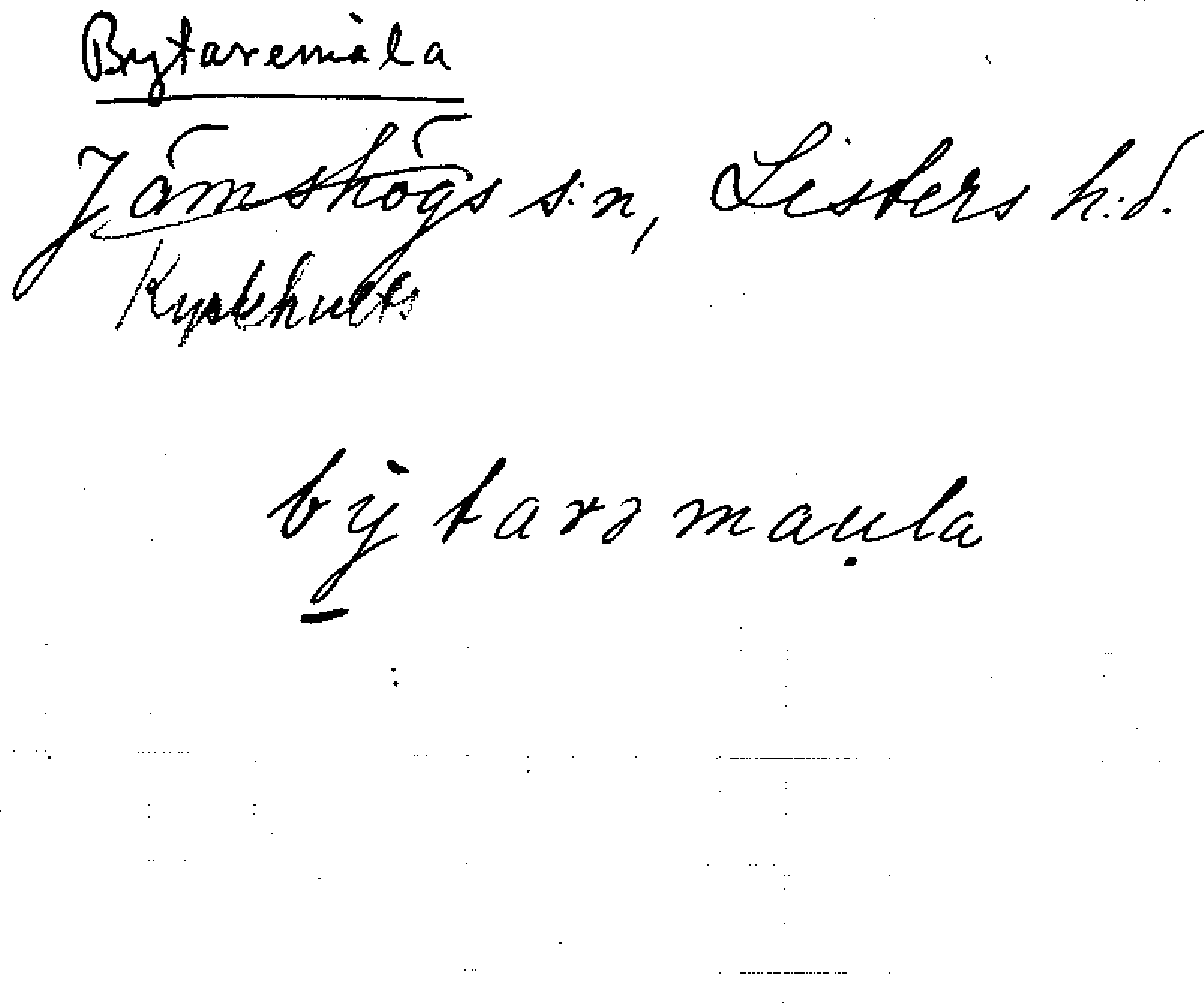 Bytaremåla
Jämshögs s:n, Listers h:d.
Kyrkhults
bỳtarə mau̩la